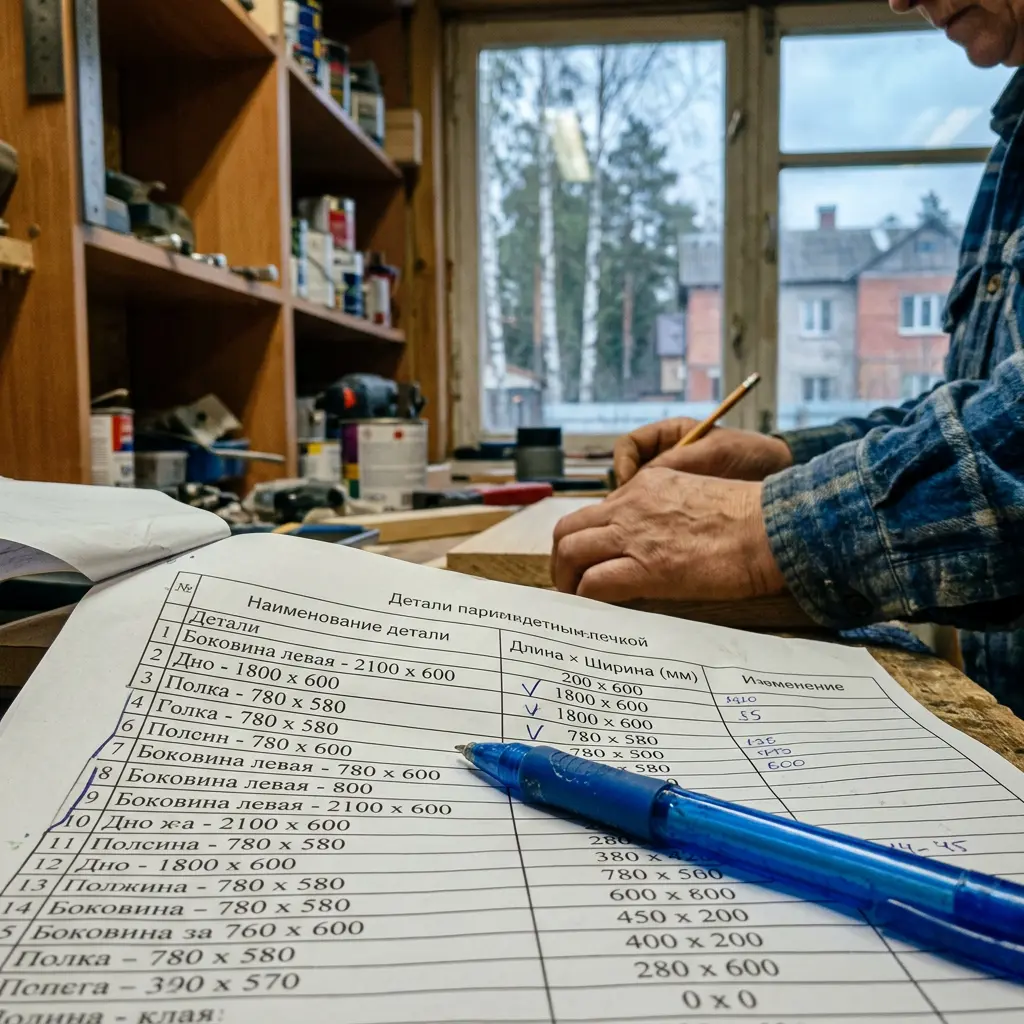 Детали паримвдетным-печкой
№ Наименование детали Длина × Ширина (мм) Изменение
Детали 200 x 600
1 Боковина левая - 2100 x 600 1800 x 600
2 Дно - 1800 x 600 1800 x 600 55
3 Полка - 780 x 580 780 x 580
4 Голка - 780 x 580 780 x 500
6 Полсин - 780 x 600 580 600
7 Боковина левая - 780 x 600
8 Боковина левая - 800
9 Боковина левая - 2100 x 600
10 Дно жа - 2100 x 600
11 Полсина - 780 x 580 380 x
12 Дно - 1800 x 600 780 x 560
13 Полжина - 780 x 580 600 x 800
14 Боковина - 780 x 580 450 x 200
5 Боковина за 760 x 600 400 x 200
Полка - 780 x 580 280 x 600
Попега - 390 x 570 0 x 0